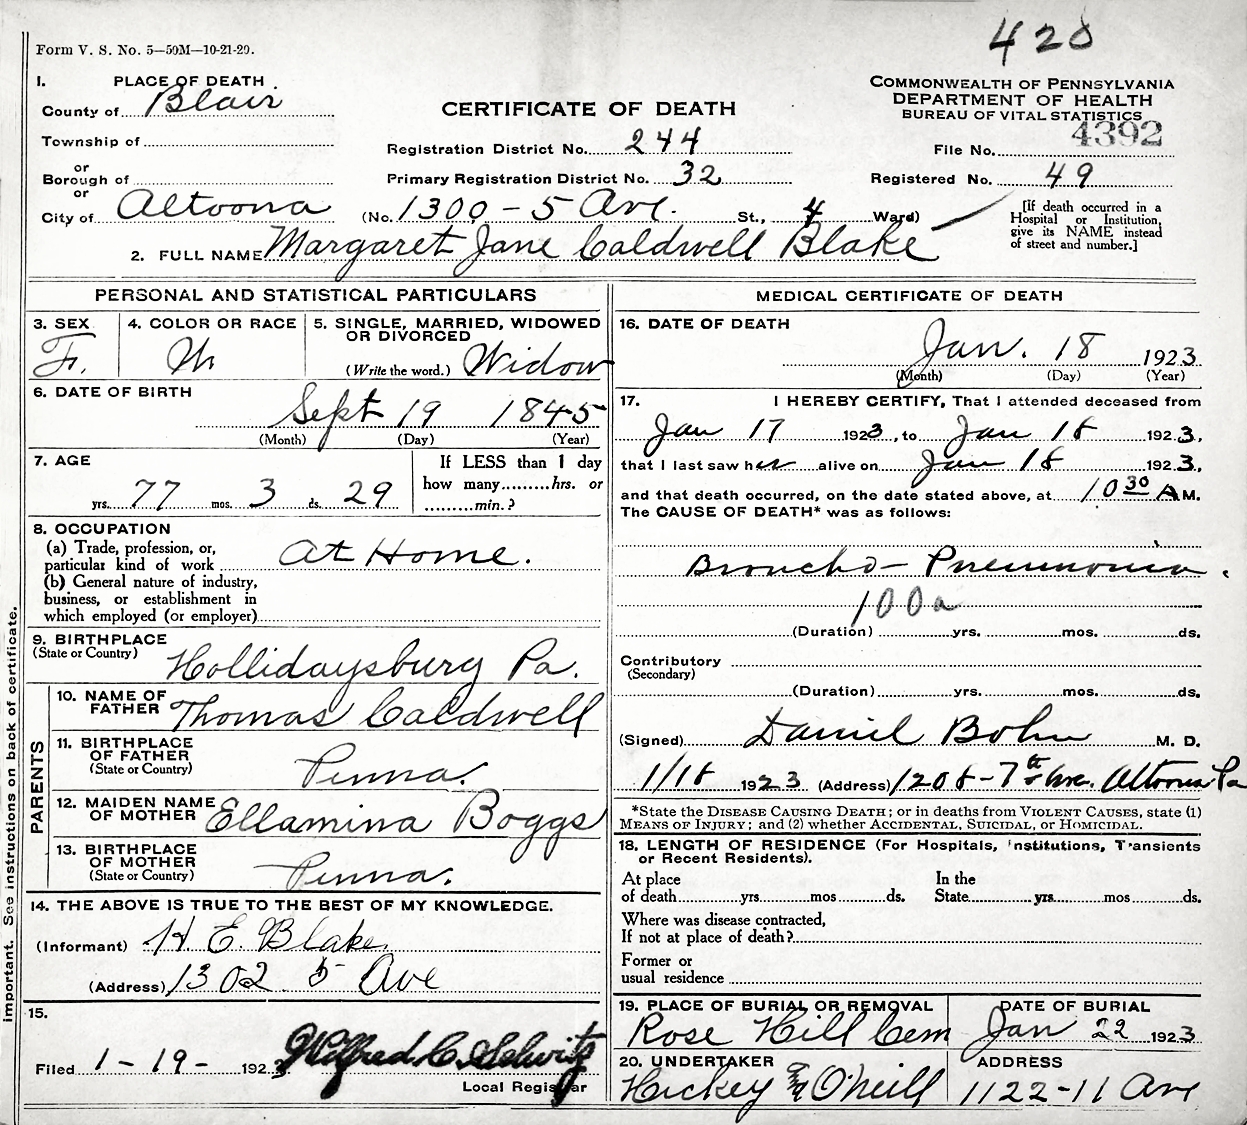 420
Form V. S. No. 5—50M—10-21-20.
1. PLACE OF DEATH.
County of Blair
Township of
or
Borough of
or
City of Altoona
CERTIFICATE OF DEATH
Registration District No. 244
Primary Registration District No. 32
(No. 1300 - 5 Ave. St., 4 Ward)
COMMONWEALTH OF PENNSYLVANIA
DEPARTMENT OF HEALTH
BUREAU OF VITAL STATISTICS
File No. 4392
Registered No. 49
[If death occurred in a
Hospital or Institution,
give its NAME instead
of street and number.]
2. FULL NAME Margaret Jane Caldwell Blake
PERSONAL AND STATISTICAL PARTICULARS
3. SEX
F.
4. COLOR OR RACE
W
5. SINGLE, MARRIED, WIDOWED
OR DIVORCED
(Write the word.) Widow
6. DATE OF BIRTH
Sept 19 1845
(Month) (Day) (Year)
7. AGE
77 yrs. 3 mos. 29 ds.
If LESS than 1 day
how many.........hrs. or
.........min.?
8. OCCUPATION
(a) Trade, profession, or,
particular kind of work At Home.
(b) General nature of industry,
business, or establishment in
which employed (or employer)
9. BIRTHPLACE
(State or Country) Hollidaysburg Pa.
PARENTS
10. NAME OF
FATHER Thomas Caldwell
11. BIRTHPLACE
OF FATHER
(State or Country) Penna.
12. MAIDEN NAME
OF MOTHER Ellamina Boggs
13. BIRTHPLACE
OF MOTHER
(State or Country) Penna.
14. THE ABOVE IS TRUE TO THE BEST OF MY KNOWLEDGE.
(Informant) H E. Blake
(Address) 1302 5 Ave
15.
Filed 1-19- 1923 Wilfred C.
Local Registrar
important. See instructions on back of certificate.
MEDICAL CERTIFICATE OF DEATH
16. DATE OF DEATH
Jan. 18 1923
(Month) (Day) (Year)
17. I HEREBY CERTIFY, That I attended deceased from
Jan 17 1923, to Jan 18 1923,
that I last saw her alive on Jan 18 1923,
and that death occurred, on the date stated above, at 10 30 A M.
The CAUSE OF DEATH* was as follows:
Broncho- Pneumonia.
100a
(Duration) yrs. mos. ds.
Contributory
(Secondary)
(Duration) yrs. mos. ds.
(Signed) Daniel Bohn M. D.
1/18 1923 (Address) 1208-7th Ave. Altoona Pa
*State the DISEASE CAUSING DEATH; or in deaths from VIOLENT CAUSES, state (1)
MEANS OF INJURY; and (2) whether ACCIDENTAL, SUICIDAL, or HOMICIDAL.
18. LENGTH OF RESIDENCE (For Hospitals, Institutions, Transients
or Recent Residents).
At place
of death yrs. mos ds.
In the
State yrs. mos ds.
Where was disease contracted,
If not at place of death?
Former or
usual residence
19. PLACE OF BURIAL OR REMOVAL
Rose Hill Cem
DATE OF BURIAL
Jan 22 1923
20. UNDERTAKER
Hickey & O'Neill
ADDRESS
1122-11 Ave